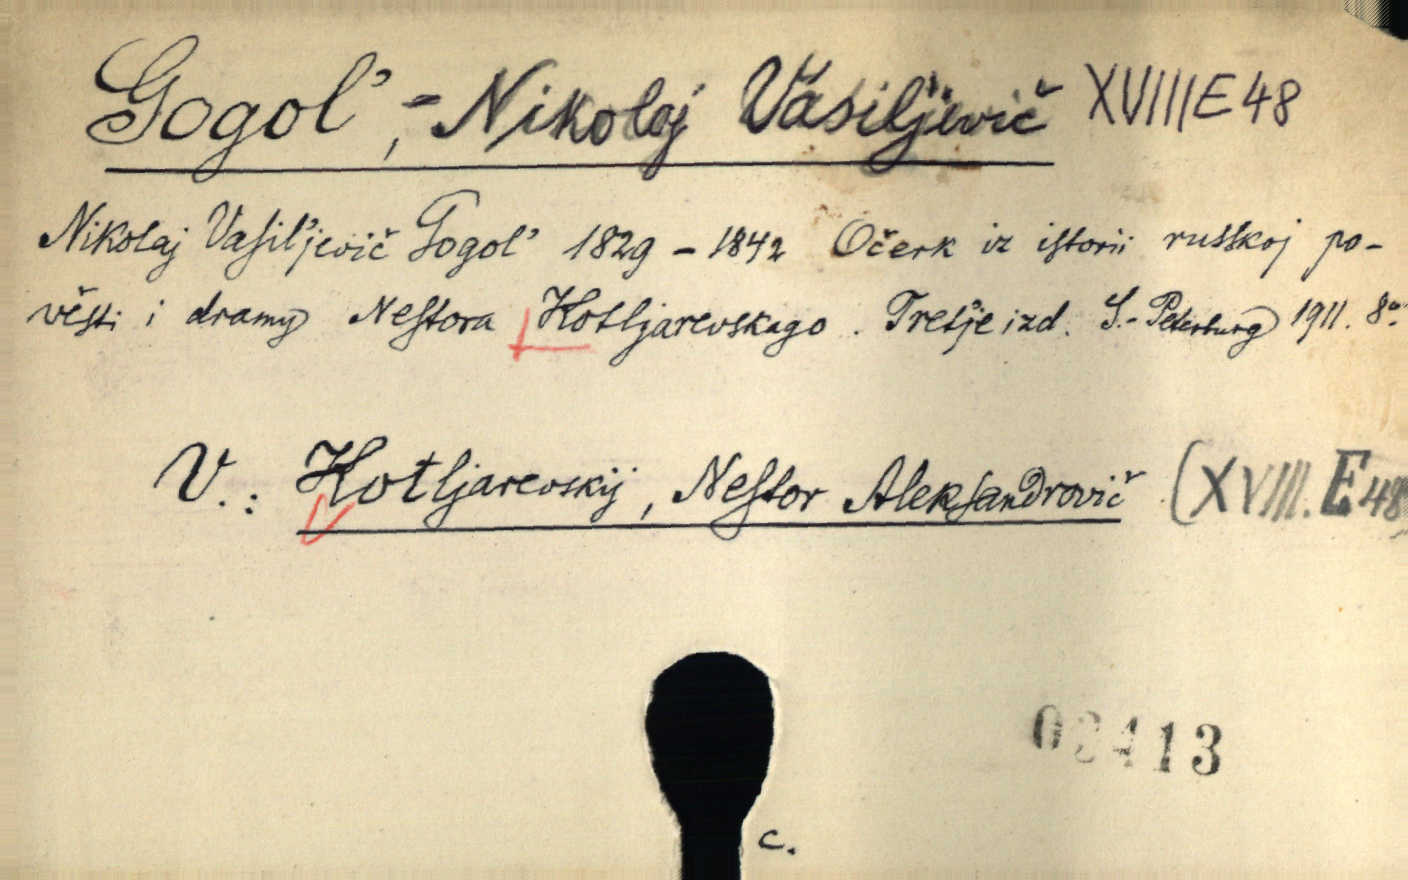 Gogol', - Nikolaj Vasiljevič XVIIIE48
Nikolaj Vasil'jevič Gogol' 1829 - 1842 Očerk iz istorii russkoj po-
věsti i dramy Nestora Kotljarevskago. Tret'je izd. S.-Peterburg 1911. 8o.
V.: Kotljarevskij, Nestor Aleksandrovič (XVIII. E 48
03413
c.